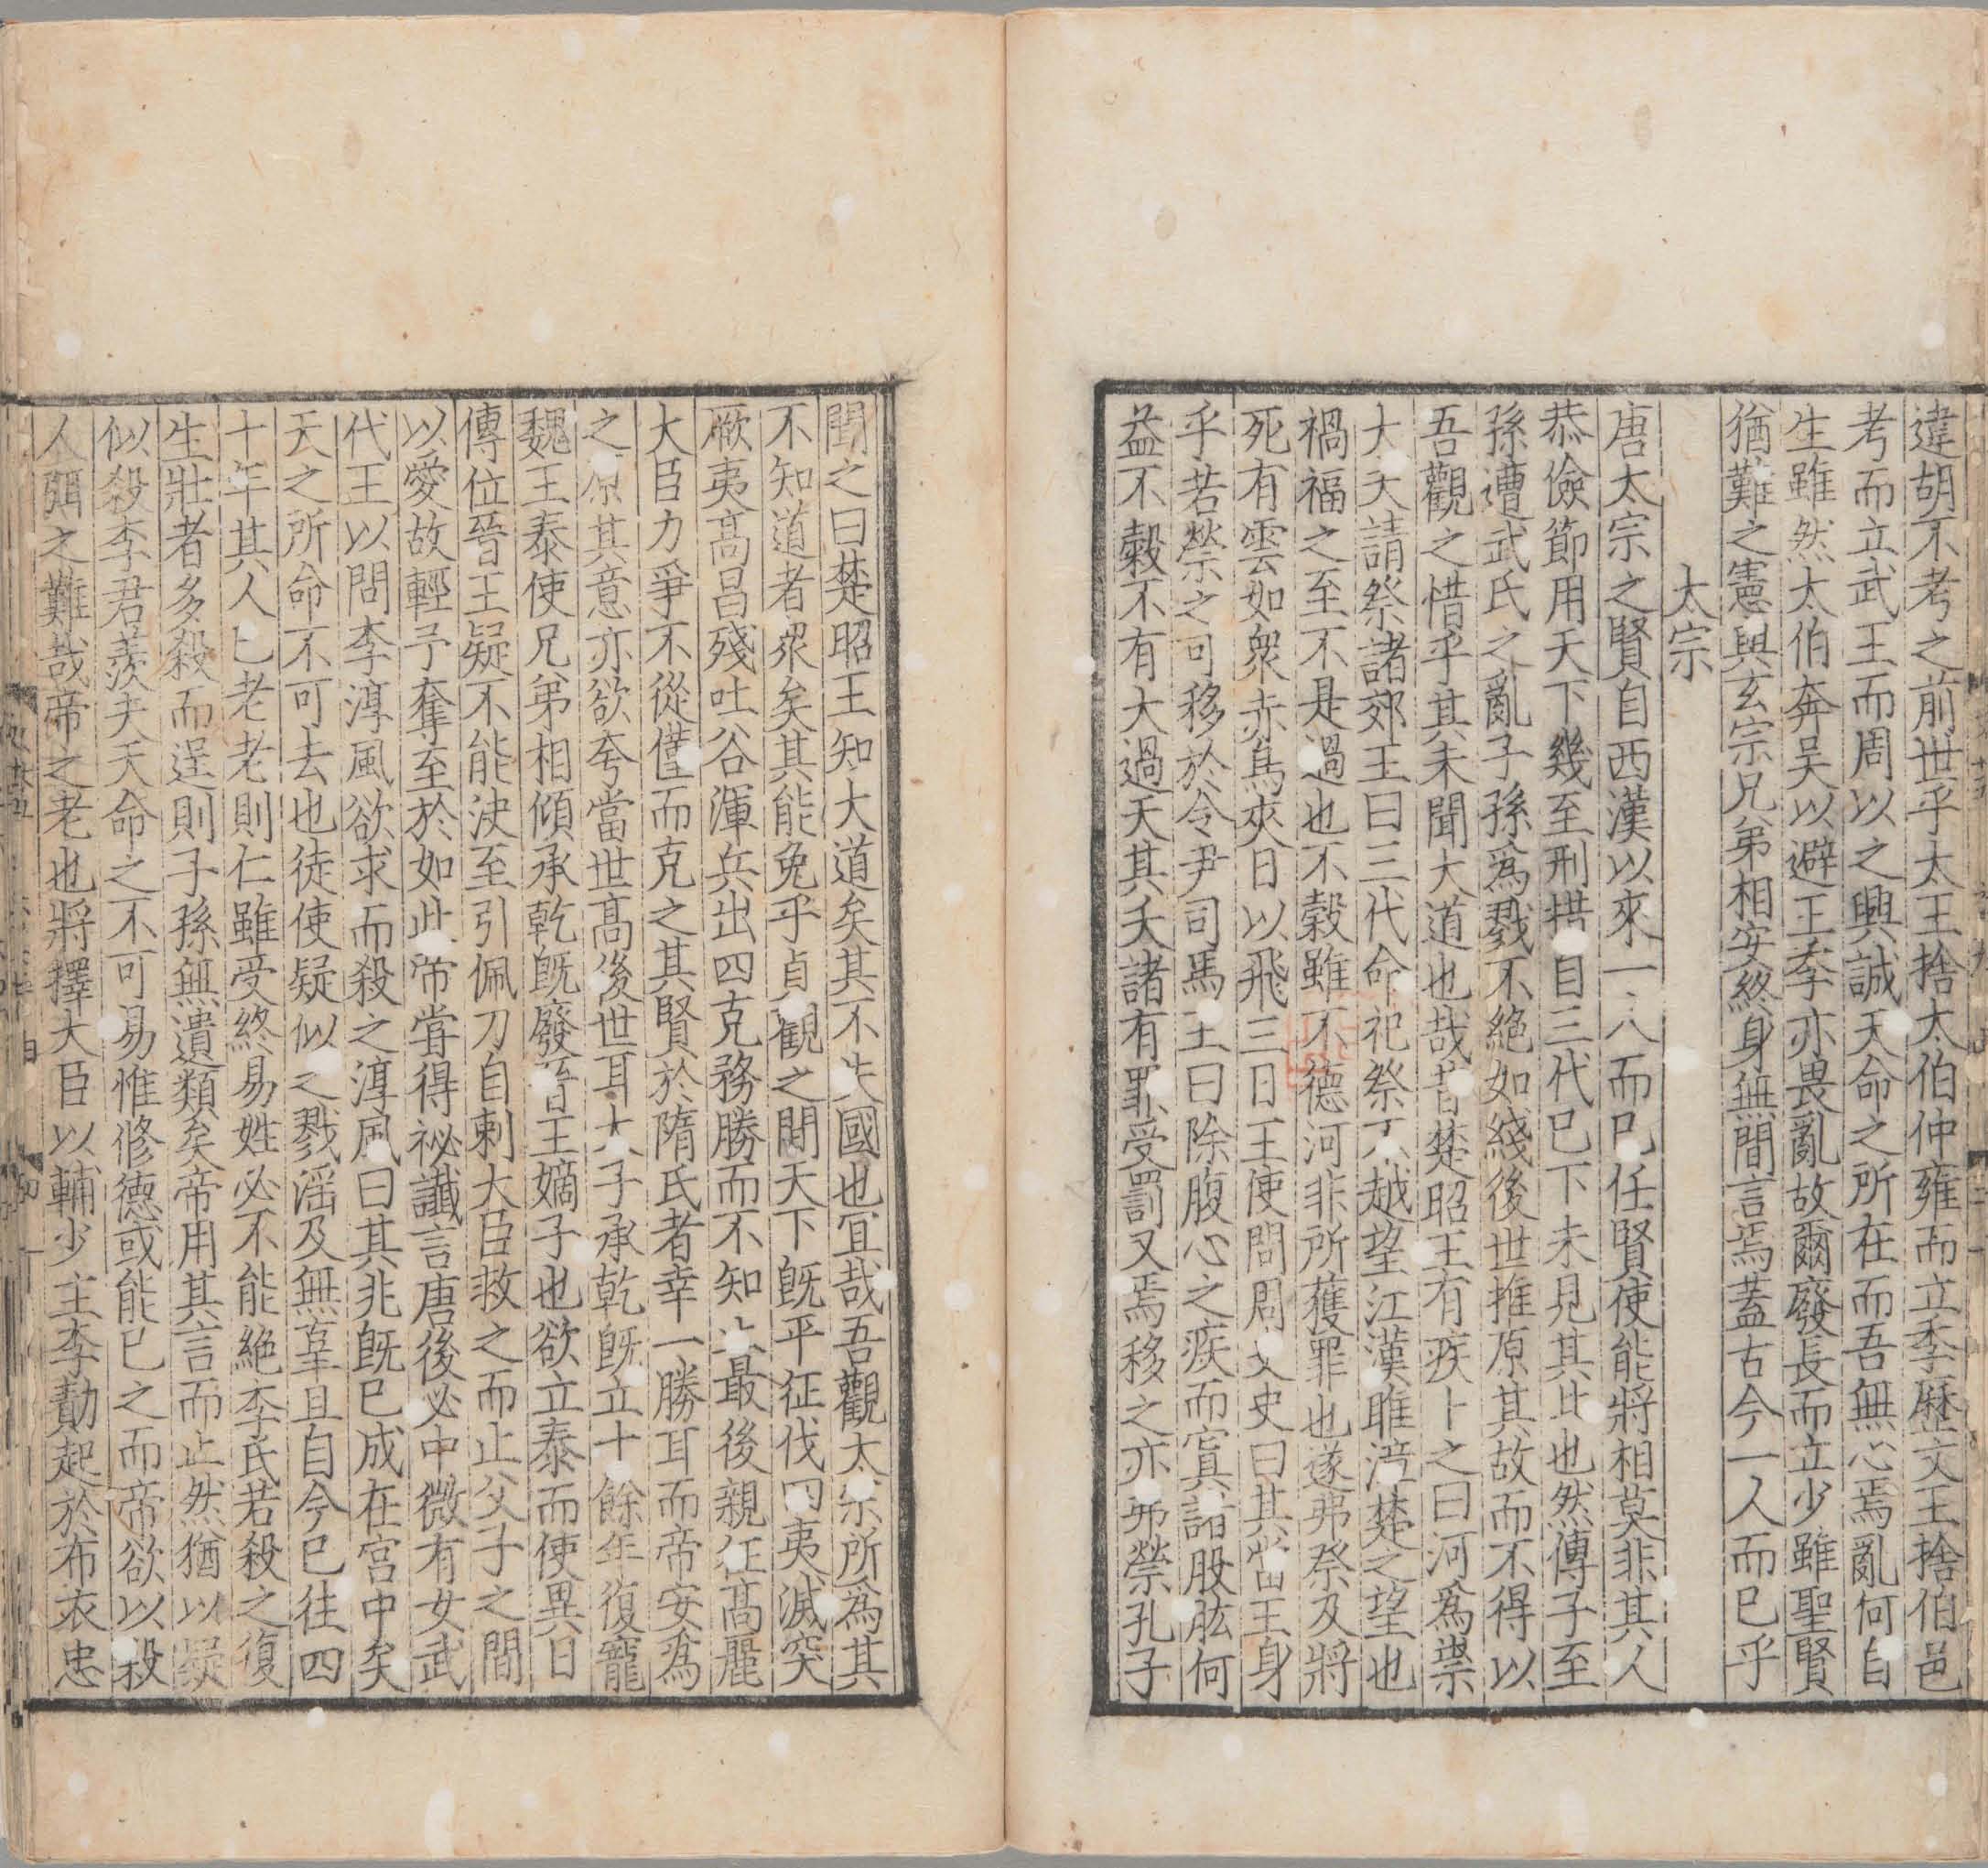 違胡不考之前世乎太王捨太伯仲雍而立季歷文王捨伯邑
考而立武王而周以之興誠天命之所在而吾無心焉亂何自
生雖然太伯奔吳以避王季亦畏亂故爾廢長而立少雖聖賢
猶難之憲與玄宗兄弟相安終身無間言焉蓋古今一人而已乎
太宗
唐太宗之賢自西漢以來一人而已任賢使能將相莫非其人
恭儉節用天下幾至刑措自三代已下未見其比也然傳子至
孫遭武氏之亂子孫為戮不絕如綫後世推原其故而不得以
吾觀之惜乎其未聞大道也哉昔楚昭王有疾卜之曰河為祟
大夫請祭諸郊王曰三代命祀祭不越望江漢雎漳楚之望也
禍福之至不是過也不穀雖不德河非所獲罪也遂弗祭及將
死有雲如衆赤鳥夾日以飛三日王使問周史曰其當王身
乎若禜之可移於令尹司馬王曰除腹心之疾而寘諸股肱何
益不穀不有大過天其夭諸有罪受罰又焉移之亦弗禜孔子
聞之曰楚昭王知大道矣其不失國也宜哉吾觀太宗所為其
不知道者衆矣其能免乎貞觀之間天下既平征伐四夷滅突
厥夷高昌殘吐谷渾兵出四克務勝而不知止最後親征高麗
大臣力爭不從僅而克之其賢於隋氏者幸一勝耳而帝安為
之原其意亦欲夸當世高後世耳太子承乾既立十餘年復寵
魏王泰使兄弟相傾承乾既廢晉王嫡子也欲立泰而使異日
傳位晉王疑不能決至引佩刀自刺大臣救之而止父子之間
以愛故輕予奪至於如此帝嘗得祕讖言唐後必中微有女武
代王以問李淳風欲求而殺之淳風曰其兆既已成在宮中矣
天之所命不可去也徒使疑似之戮淫及無辜且自今已往四
十年其人已老老則仁雖受終易姓必不能絕李氏若殺之復
生壯者多殺而逞則子孫無遺類矣帝用其言而止然猶以疑
似殺李君羨夫天命之不可易惟修德或能已之而帝欲以殺
人弭之難哉帝之老也將擇大臣以輔少主李勣起於布衣忠